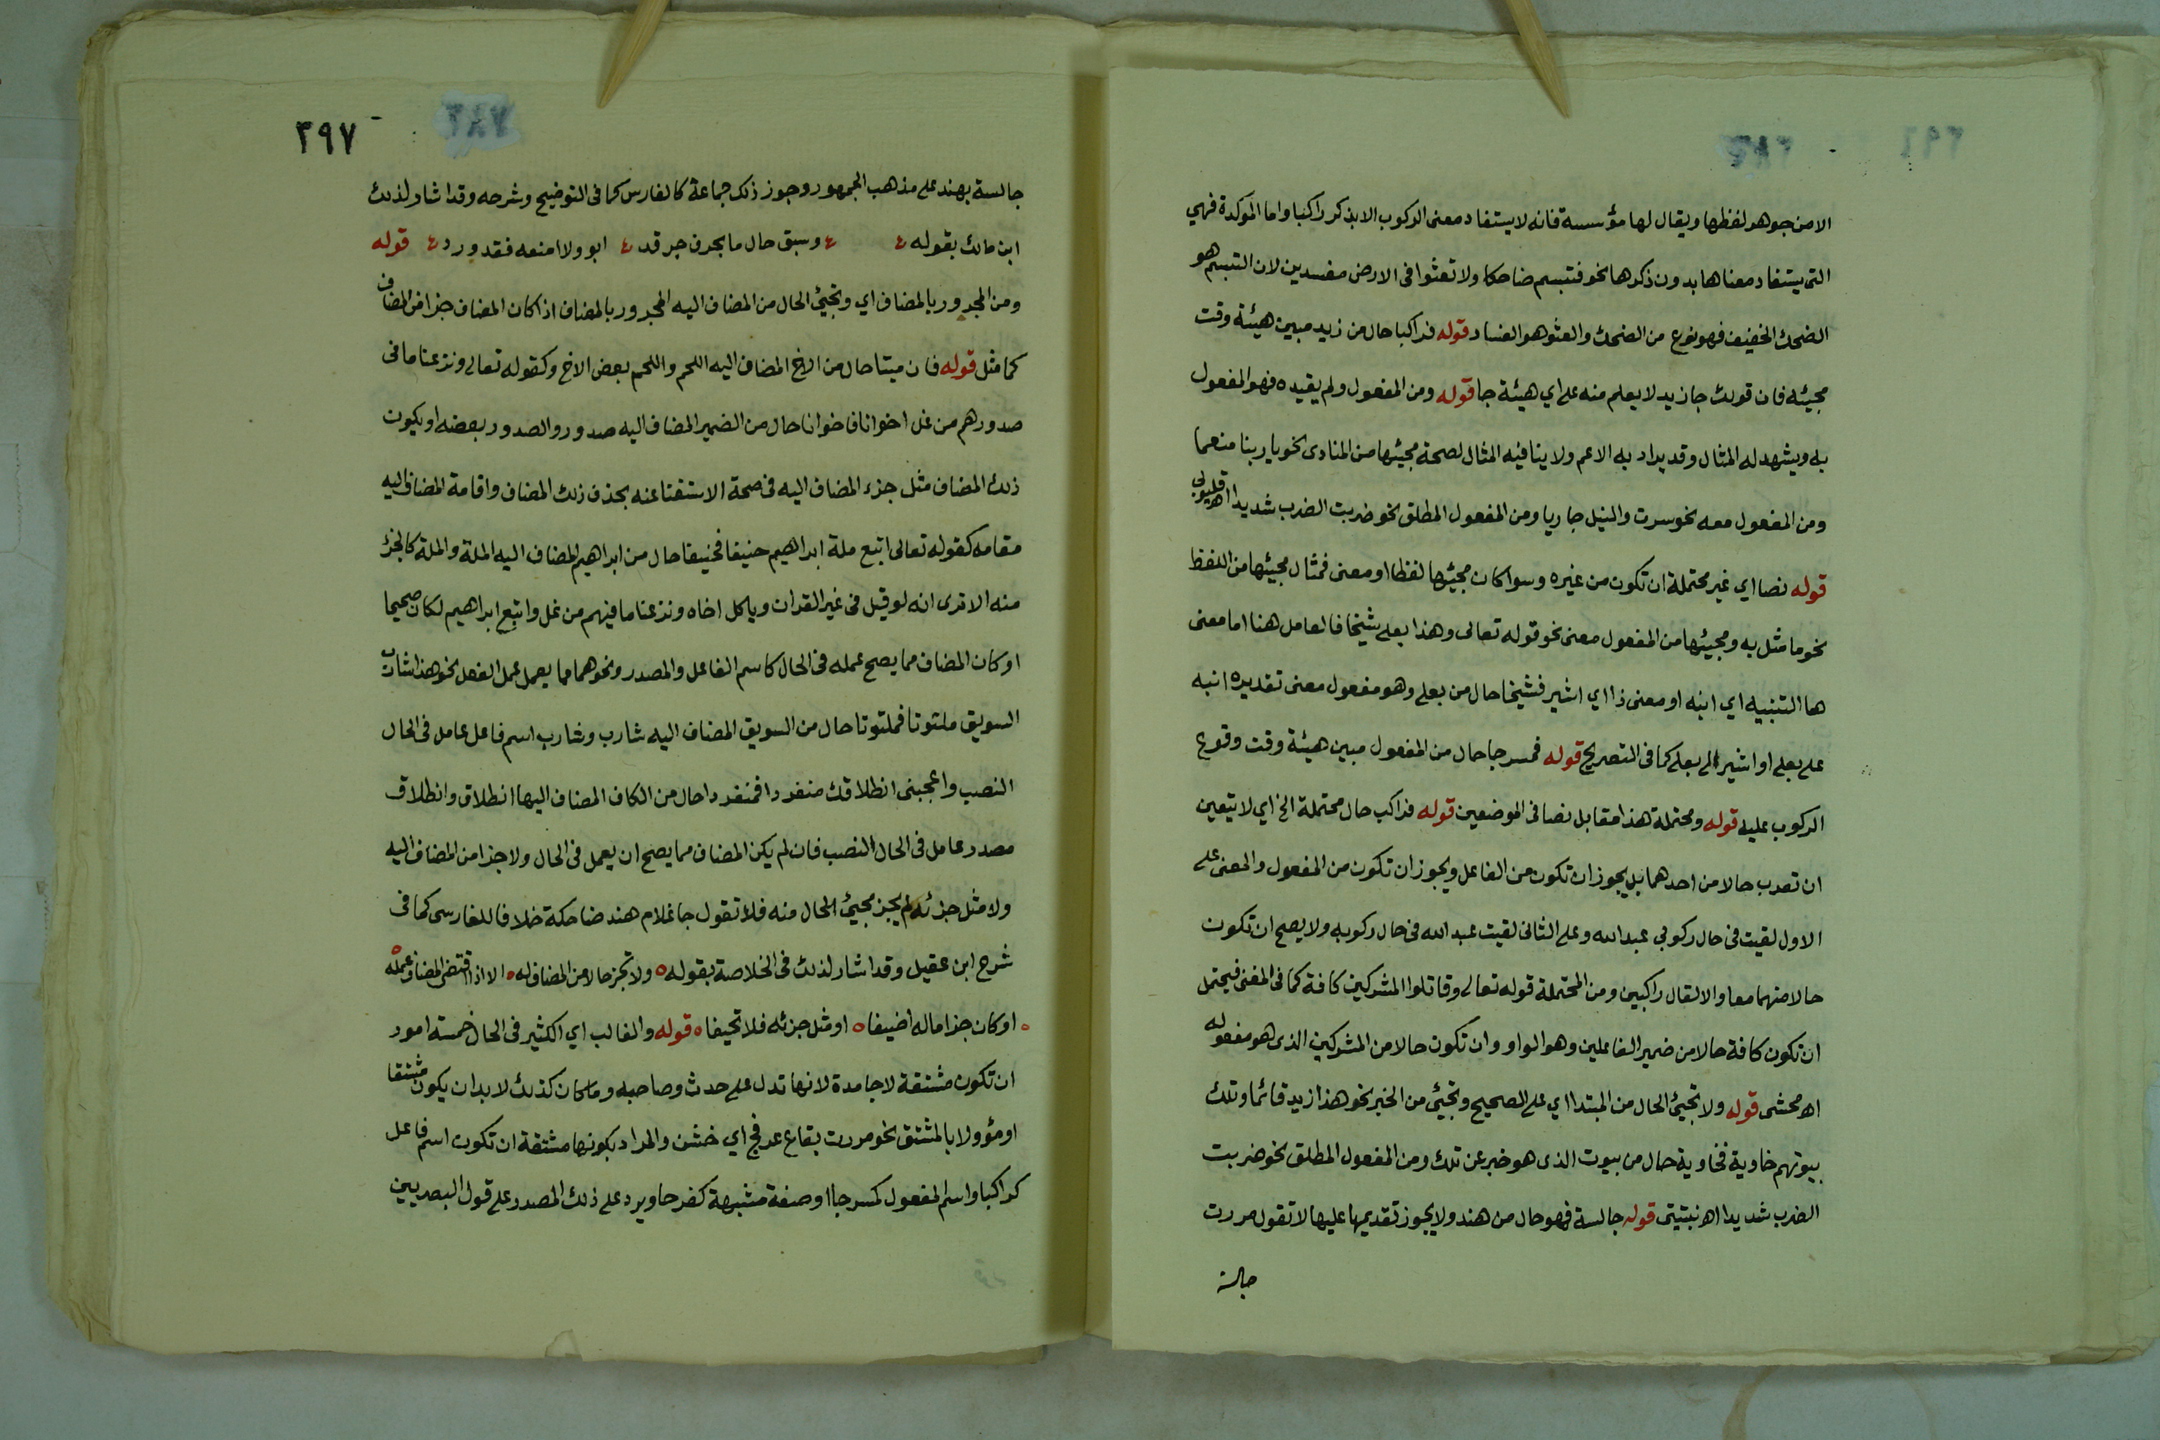 الامن جوهر لفظها ويقال لها مؤسسة فانه لا يستفاد معنى الركوب الا بذكر راكبا واما الموكدة فهي
التى يستفاد معناها بدون ذكرها نحو فتبسم ضاحكا ولا تعثوا فى الارض مفسدين لان التبسم هو
الضحك الخفيف فهو نوع من الضحك والعثو هو الفساد قوله فراكبا حال من زيد مبين هيئة وقت
مجيئه فان قولك جا زيد لا يعلم منه على اي هيئة جا قوله ومن المفعول ولم يقيده فهو المفعول
به ويشهد له المثال وقد يراد به الاعم ولا ينافيه المثال لصحة مجيئها من المنادى نحو يا ربنا منعما
ومن المفعول معه نحو سرت والنيل جاريا ومن المفعول المطلق نحو ضربت الضرب شديدا اهـ قليوبي
قوله نصا اي غير محتملة ان تكون من غيره وسوا كان مجيئها لفظا او معنى فمثال مجيئها من اللفظ
نحو ما مثل به ومجيئها من المفعول معنى نحو قوله تعالى وهذا بعلى شيخا فالعامل هنا اما معنى
ها التنبيه اي انبه او معنى ذا اي اشير فشيخا حال من بعلى وهو مفعول معنى تقديره انبه
على بعلى او اشير الى بعلى كما فى التصريح قوله فمسرجا حال من المفعول مبين هيئة وقت وقوع
الركوب عليه قوله ومحتملة هذا مقابل نصا فى الموضعين قوله فراكب حال محتملة الخ اي لا يتعين
ان تعرب حالا من احدهما بل يجوز ان تكون من الفاعل ويجوز ان تكون من المفعول والمعنى على
الاول لقيت فى حال ركوبي عبد الله وعلى الثانى لقيت عبد الله فى حال ركوبه ولا يصح ان تكون
حالا منهما معا والا لقال راكبين ومن المحتملة قوله تعالى وقاتلوا المشركين كافة كما فى المغنى فيحتمل
ان تكون كافة حالا من ضمير الفاعلين وهو الواو وان تكون حالا من المشركين الذى هو مفعوله
اهـ محشى قوله ولا تجيئ الحال من المبتدا اي على الصحيح وتجيئ من الخبر نحو هذا زيد قائما وتلك
بيوتهم خاوية فخاوية حال من بيوت الذى هو خبر عن تلك ومن المفعول المطلق نحو ضربت
الضرب شديدا اهـ نبتيتى قوله جالسة فهو حال من هند ولا يجوز تقديمها عليها لا تقول مررت
جالسة
٣٩٧
جالسة بهند على مذهب الجمهور وجوز ذلك جماعة كالفارسى كما فى التوضيح وشرحه وقد اشار لذلك
ابن مالك بقوله وسبق حال ما بحرف جر قد ابو ولا امنعه فقد ورد قوله
ومن المجرور بالمضاف اي وتجيئ الحال من المضاف اليه المجرور بالمضاف اذا كان المضاف جزا من المضاف
كما مثل قوله فان ميتا حال من الاخ المضاف اليه اللحم واللحم بعض الاخ وكقوله تعالى ونزعنا ما فى
صدورهم من غل اخوانا فاخوانا حال من الضمير المضاف اليه صدور والصدور بعضه او يكون
ذلك المضاف مثل جزء المضاف اليه فى صحة الاستغنا عنه بحذف ذلك المضاف واقامة المضاف اليه
مقامه كقوله تعالى اتبع ملة ابراهيم حنيفا فحنيفا حال من ابراهيم المضاف اليه الملة والملة كالجزء
منه الا ترى انه لو قيل فى غير القران وياكل اخاه ونزعنا ما فيهم من غل واتبع ابراهيم لكان صحيحا
او كان المضاف مما يصح عمله فى الحال كاسم الفاعل والمصدر ونحوهما مما يعمل عمل الفعل نحو هذا شارب
السويق ملتوتا فملتوتا حال من السويق المضاف اليه شارب وشارب اسم فاعل عامل فى الحال
النصب واعجبنى انطلاقك منفردا فمنفردا حال من الكاف المضاف اليها انطلاق وانطلاق
مصدر عامل فى الحال النصب فان لم يكن المضاف مما يصح ان يعمل فى الحال ولا جزا من المضاف اليه
ولا مثل جزئه لم يجز مجيئ الحال منه فلا تقول جا غلام هند ضاحكة خلافا للفارسى كما فى
شرح ابن عقيل وقد اشار لذلك فى الخلاصة بقوله ولا تجز حالا من المضاف له الا اذا اقتضى المضاف عمله
او كان جزا ما له اضيفا او مثل جزئه فلا تحيفا قوله والغالب اي الكثير فى الحال خمسة امور
ان تكون مشتقة لا جامدة لانها تدل على حدث وصاحبه وما كان كذلك لا بد ان يكون مشتقا
او مؤولا بالمشتق نحو مررت بقاع عرفج اي خشن والمراد بكونها مشتقة ان تكون اسم فاعل
كراكبا واسم المفعول كمسرجا او صفة مشبهة كفرحا ويرد على ذلك المصدر على قول البصريين